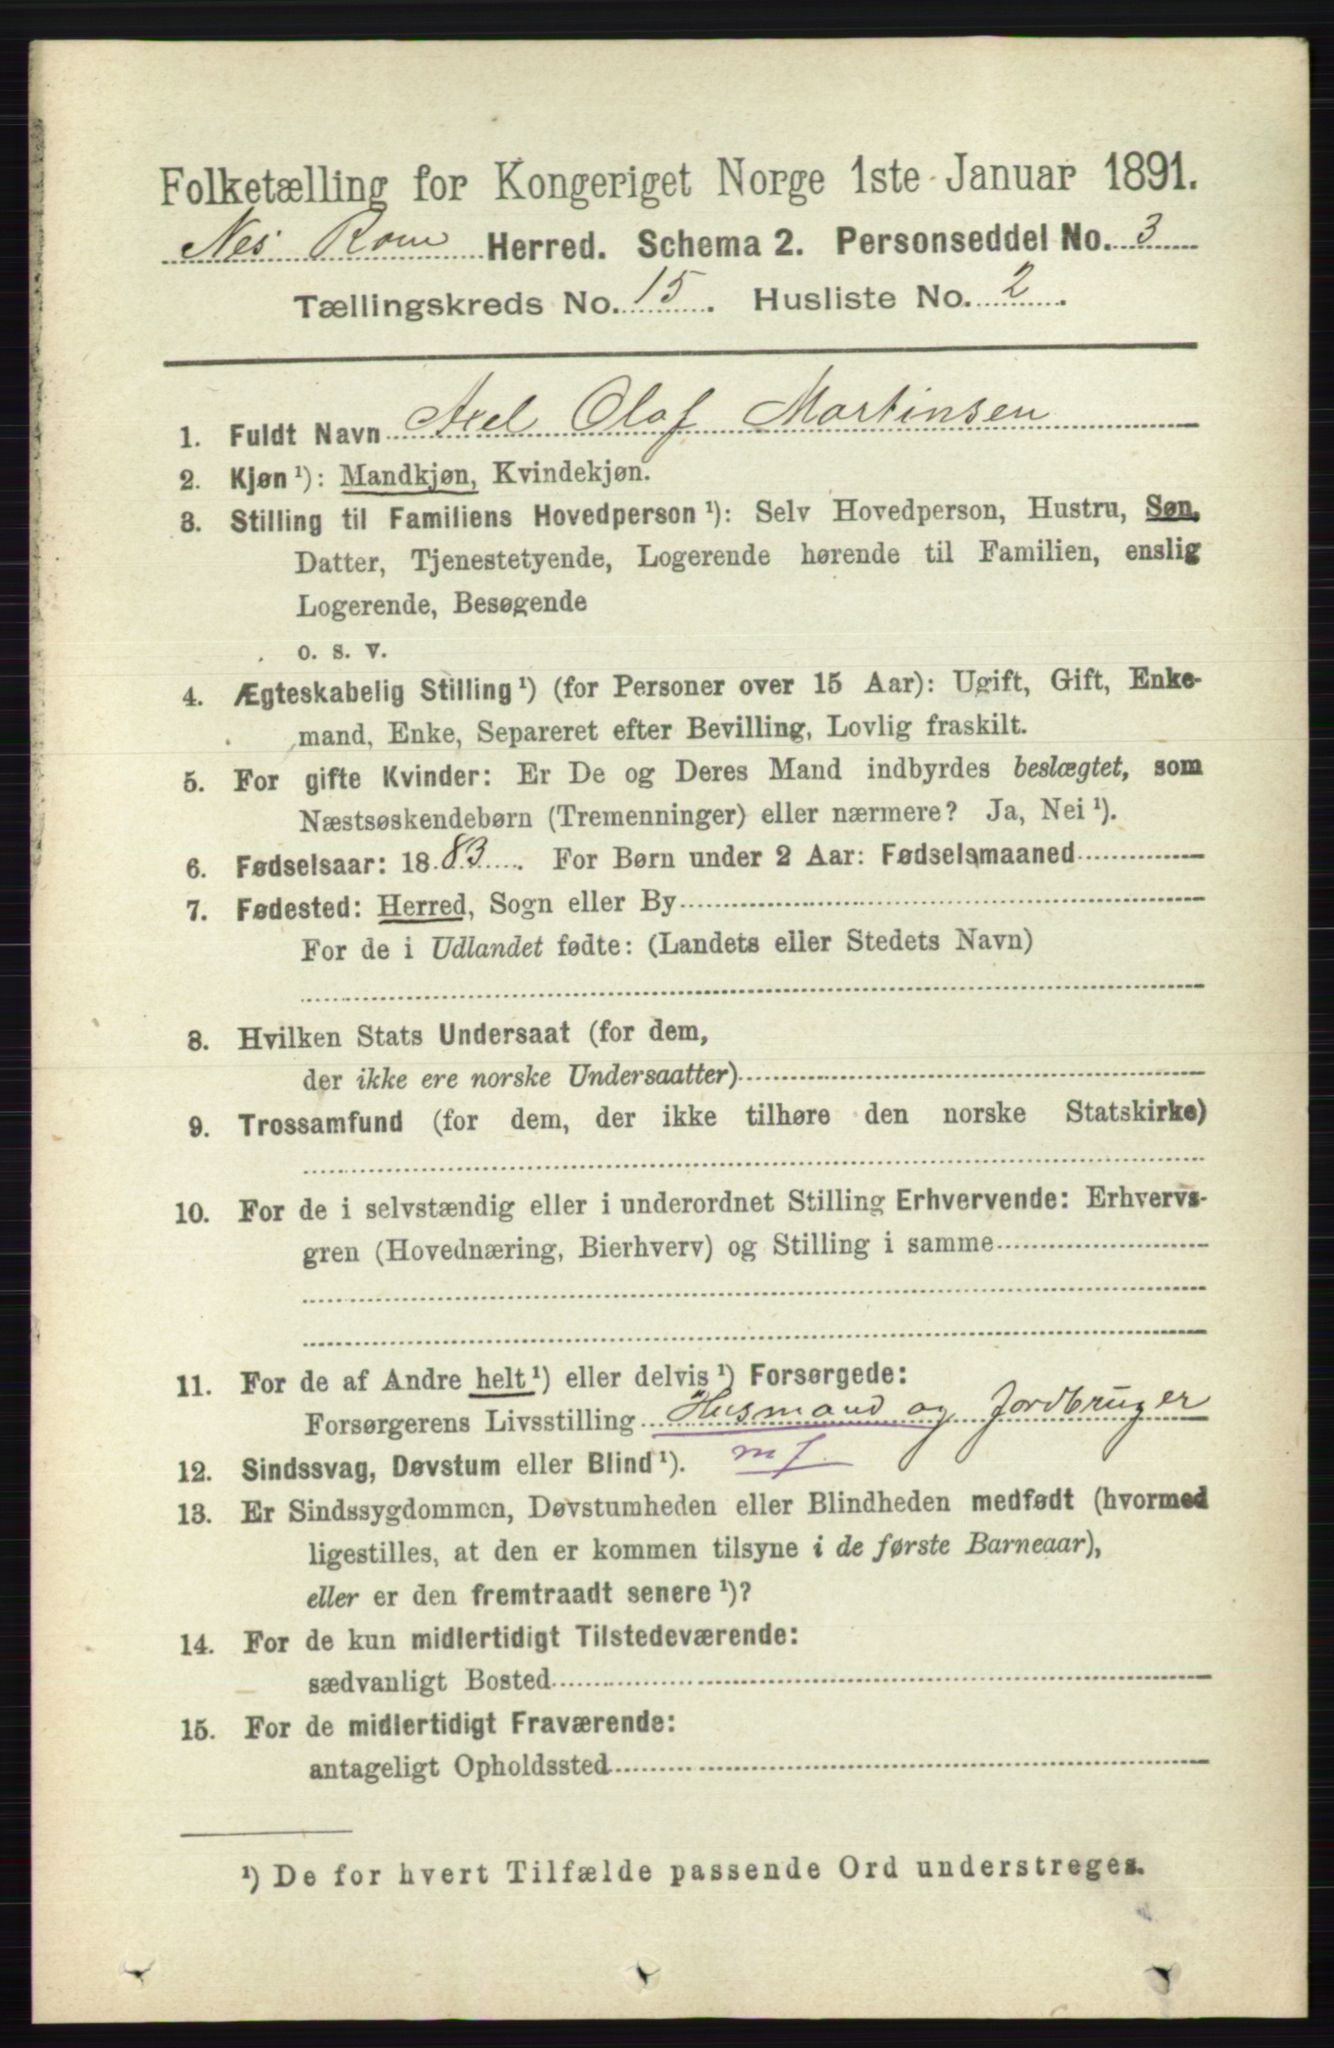 Folketælling for Kongeriget Norge 1ste Januar 1891.
Nes Rom Herred. Schema 2. Personseddel No. 3
Tællingskreds No. 15. Husliste No. 2.
1. Fuldt Navn Axel Olaf Martinsen
2. Kjøn ¹): Mandkjøn, Kvindekjøn.
3. Stilling til Familiens Hovedperson ¹): Selv Hovedperson, Hustru, Søn,
Datter, Tjenestetyende, Logerende hørende til Familien, enslig
Logerende, Besøgende
o. s. v.
4. Ægteskabelig Stilling ¹) (for Personer over 15 Aar): Ugift, Gift, Enke-
mand, Enke, Separeret efter Bevilling, Lovlig fraskilt.
5. For gifte Kvinder: Er De og Deres Mand indbyrdes beslægtet, som
Næstsøskendebørn (Tremenninger) eller nærmere? Ja, Nei ¹).
6. Fødselsaar: 1883. For Børn under 2 Aar: Fødselsmaaned
7. Fødested: Herred, Sogn eller By
For de i Udlandet fødte: (Landets eller Stedets Navn)
8. Hvilken Stats Undersaat (for dem,
der ikke ere norske Undersaatter)
9. Trossamfund (for dem, der ikke tilhøre den norske Statskirke)
10. For de i selvstændig eller i underordnet Stilling Erhvervende: Erhvervs-
gren (Hovednæring, Bierhverv) og Stilling i samme
11. For de af Andre helt ¹) eller delvis ¹) Forsørgede:
Forsørgerens Livsstilling Husmand og Jordbruger
12. Sindssvag, Døvstum eller Blind ¹). mj.
13. Er Sindssygdommen, Døvstumheden eller Blindheden medfødt (hvormed
ligestilles, at den er kommen tilsyne i de første Barneaar),
eller er den fremtraadt senere ¹)?
14. For de kun midlertidigt Tilstedeværende:
sædvanligt Bosted
15. For de midlertidigt Fraværende:
antageligt Opholdssted
¹) De for hvert Tilfælde passende Ord understreges.